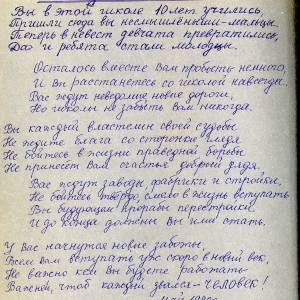 Вы в этой школе 10 лет учились,
Пришли сюда вы несмышлёныши-мальцы.
Теперь в невест девчата превратились,
Да и ребята стали молодцы.
Осталось вместе Вам пробыть немного,
И Вы расстанетесь со школой навсегда.
Вас ждут неведомые новые дороги,
Но школы не забыть Вам никогда.
Вы каждый властелин своей судьбы
Не ждите блага со сторонки глядя
Не бойтесь в жизни праведной борьбы
Не принесет Вам счастье добрый дядя.
Вас ждут заводы, фабрики и стройки,
Не бойтесь твёрдо, смело в жизнь вступать
Вы будущие прорабы перестройки
И до конца должны Вы ими стать.
У Вас начнутся новые заботы,
Всем вам вступать уж скоро в новый век,
Не важно кем Вы будете работать
Важней, чтоб каждый звался - ЧЕЛОВЕК!